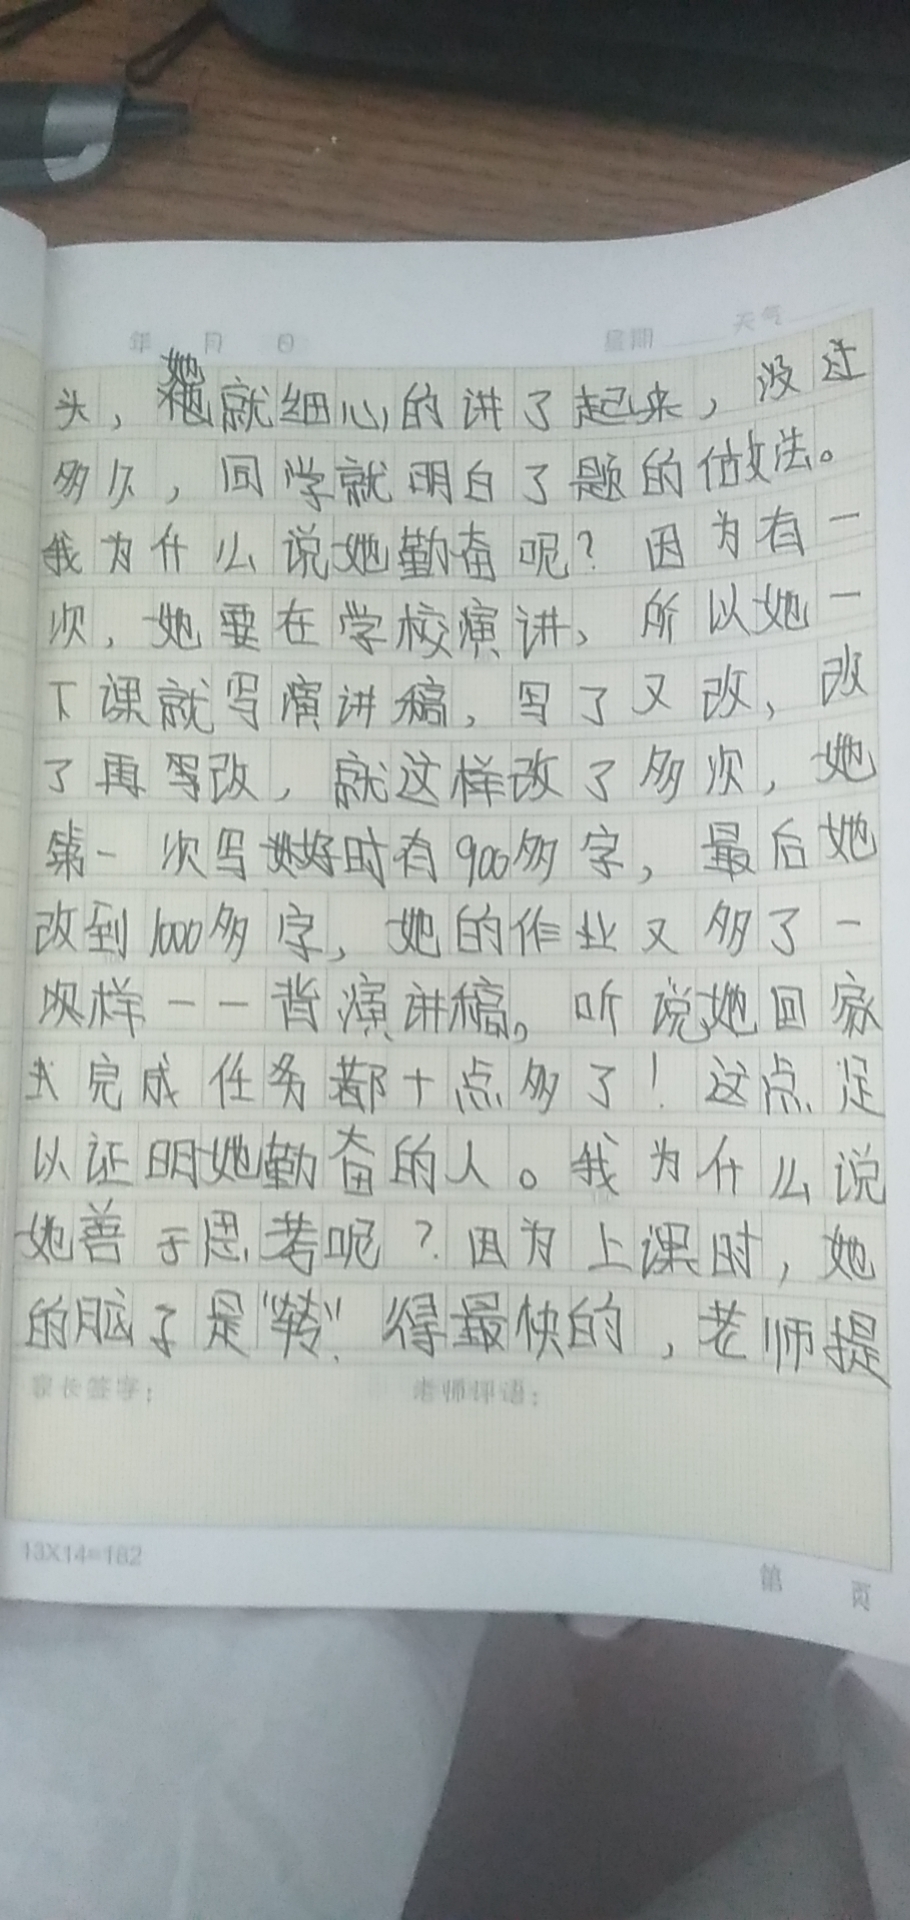 年 月 日 星期 天气
头，她就细心的讲了起来，没过
多久，同学就明白了题的做法。
我为什么说她勤奋呢？因为有一
次，她要在学校演讲，所以她一
下课就写演讲稿，写了又改，改
了再写改，就这样改了多次，她
第一次写好时有900多字，最后她
改到1000多字，她的作业又多了一
样一一背演讲稿。听说她回家
完成任务都十点多了！这点足
以证明她勤奋的人。我为什么说
她善于思考呢？因为上课时，她
的脑子是“转”得最快的，老师提
家长签字： 老师评语：
13X14=182
第 页